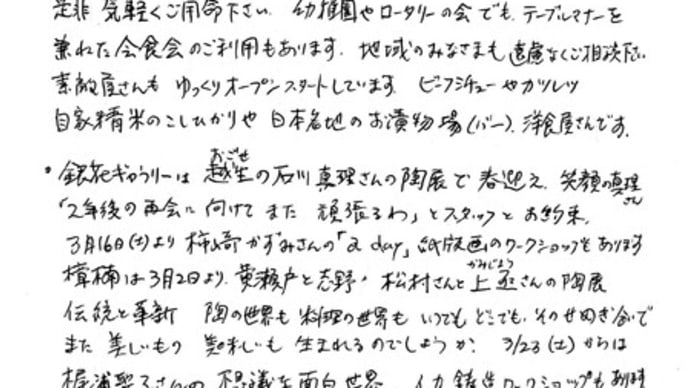 是非 気軽くご用命下さい。幼稚園やロータリーの会でも、テーブルマナーを
兼ねた会食会のご利用もあります。地域のみなさまも遠慮なくご相談下さい
素敵屋さんも ゆっくりオープンスタートしています。ビーフシチューやカツレツ
自家精米のこしひかりや日本各地のお漬物場(バー)、洋食屋さんです。
・銀花ギャラリーは 越生の石川真理さんの陶展で春迎え、笑顔の真理さん
おごせ
「2年後の再会に向けてまた 頑張るわ」とスタッフとお約束。
3月16日(土)より 柿崎かずみさんの「a day」紙版画のワークショップもあります
楠は3月2日より、黄瀬戸と志野・松村さんと上丞さんの陶展
かみじょう
伝統と革新 陶の世界も料理の世界も いつでもどこでも、そのせめぎ合いで
また 美しいもの 美味しいも 生まれるのでしょうか? 3/23(土)からは
梶浦聖子さんの 不思議な面白世界 イカ鋳造ワークショップもあります